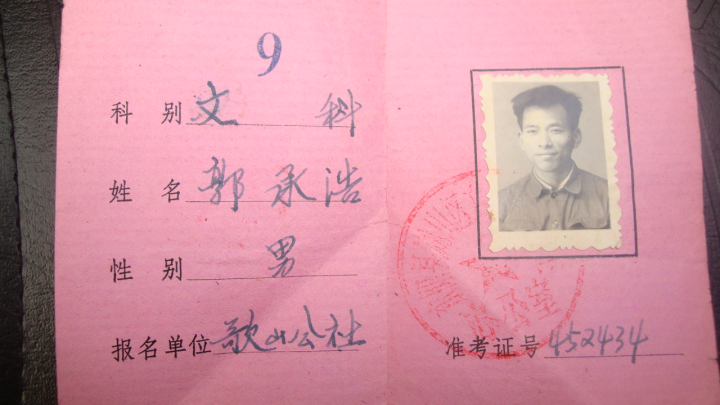 9
科 别 文 科
姓 名 郭承浩
性 别 男
报名单位 歌山公社
准考证号 452434